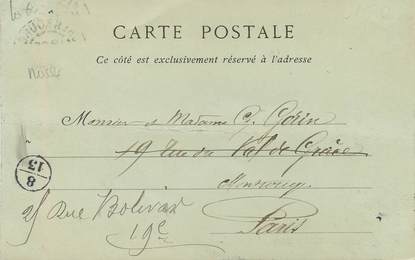 CARTE POSTALE
Ce côté est exclusivement réservé à l'adresse
Monsieur et Madame C. Corin
19 Rue du Val de Grâce
Paris
8
15
25 Rue Bolivar
19e